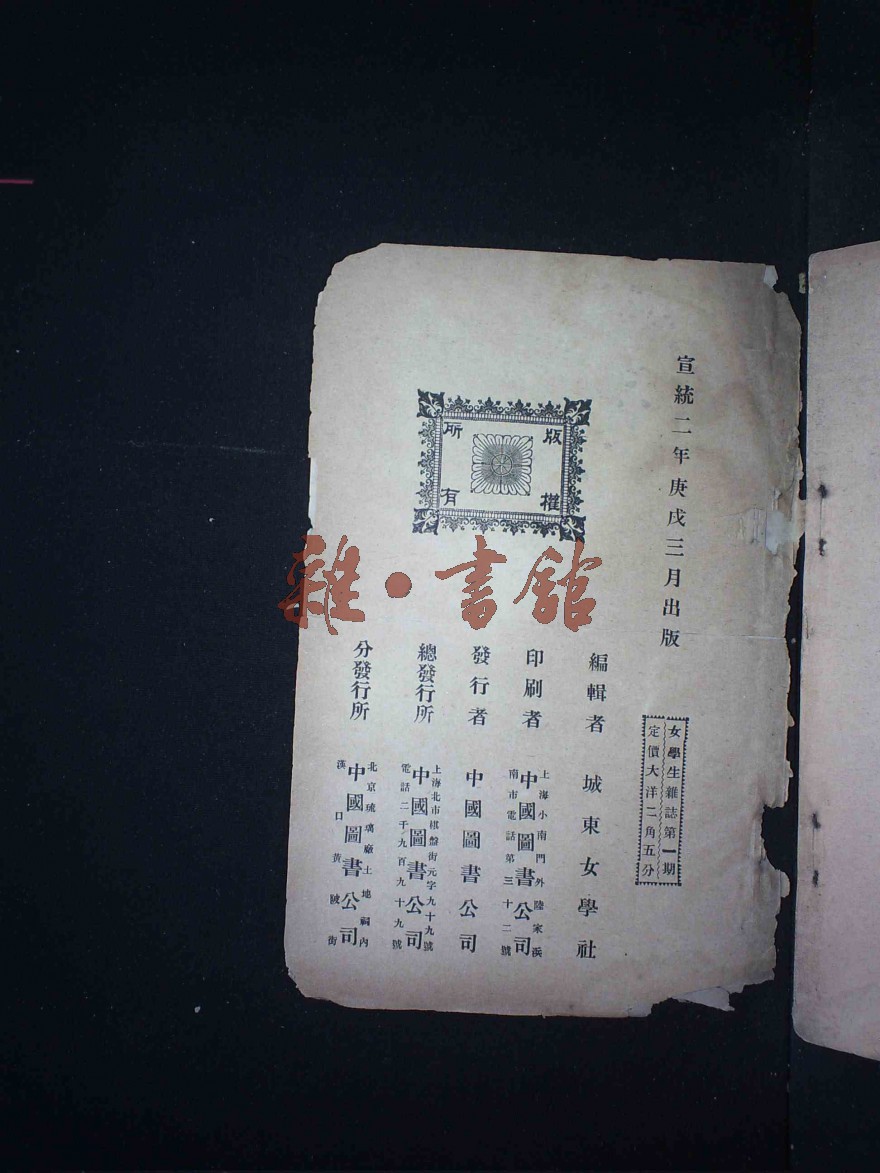 宣統二年庚戌三月出版
女學生雜誌第一期
定價大洋二角五分
版權
所有
編輯者 城東女學社
上海小南門外陸家浜
印刷者 中國圖書公司
南市電話第三十二號
發行者 中國圖書公司
上海北市棋盤街元字九十九號
總發行所 中國圖書公司
電話二千九百九十九號
北京琉璃廠土地祠內
分發行所 中國圖書公司
漢口黃陂街
雜·書館